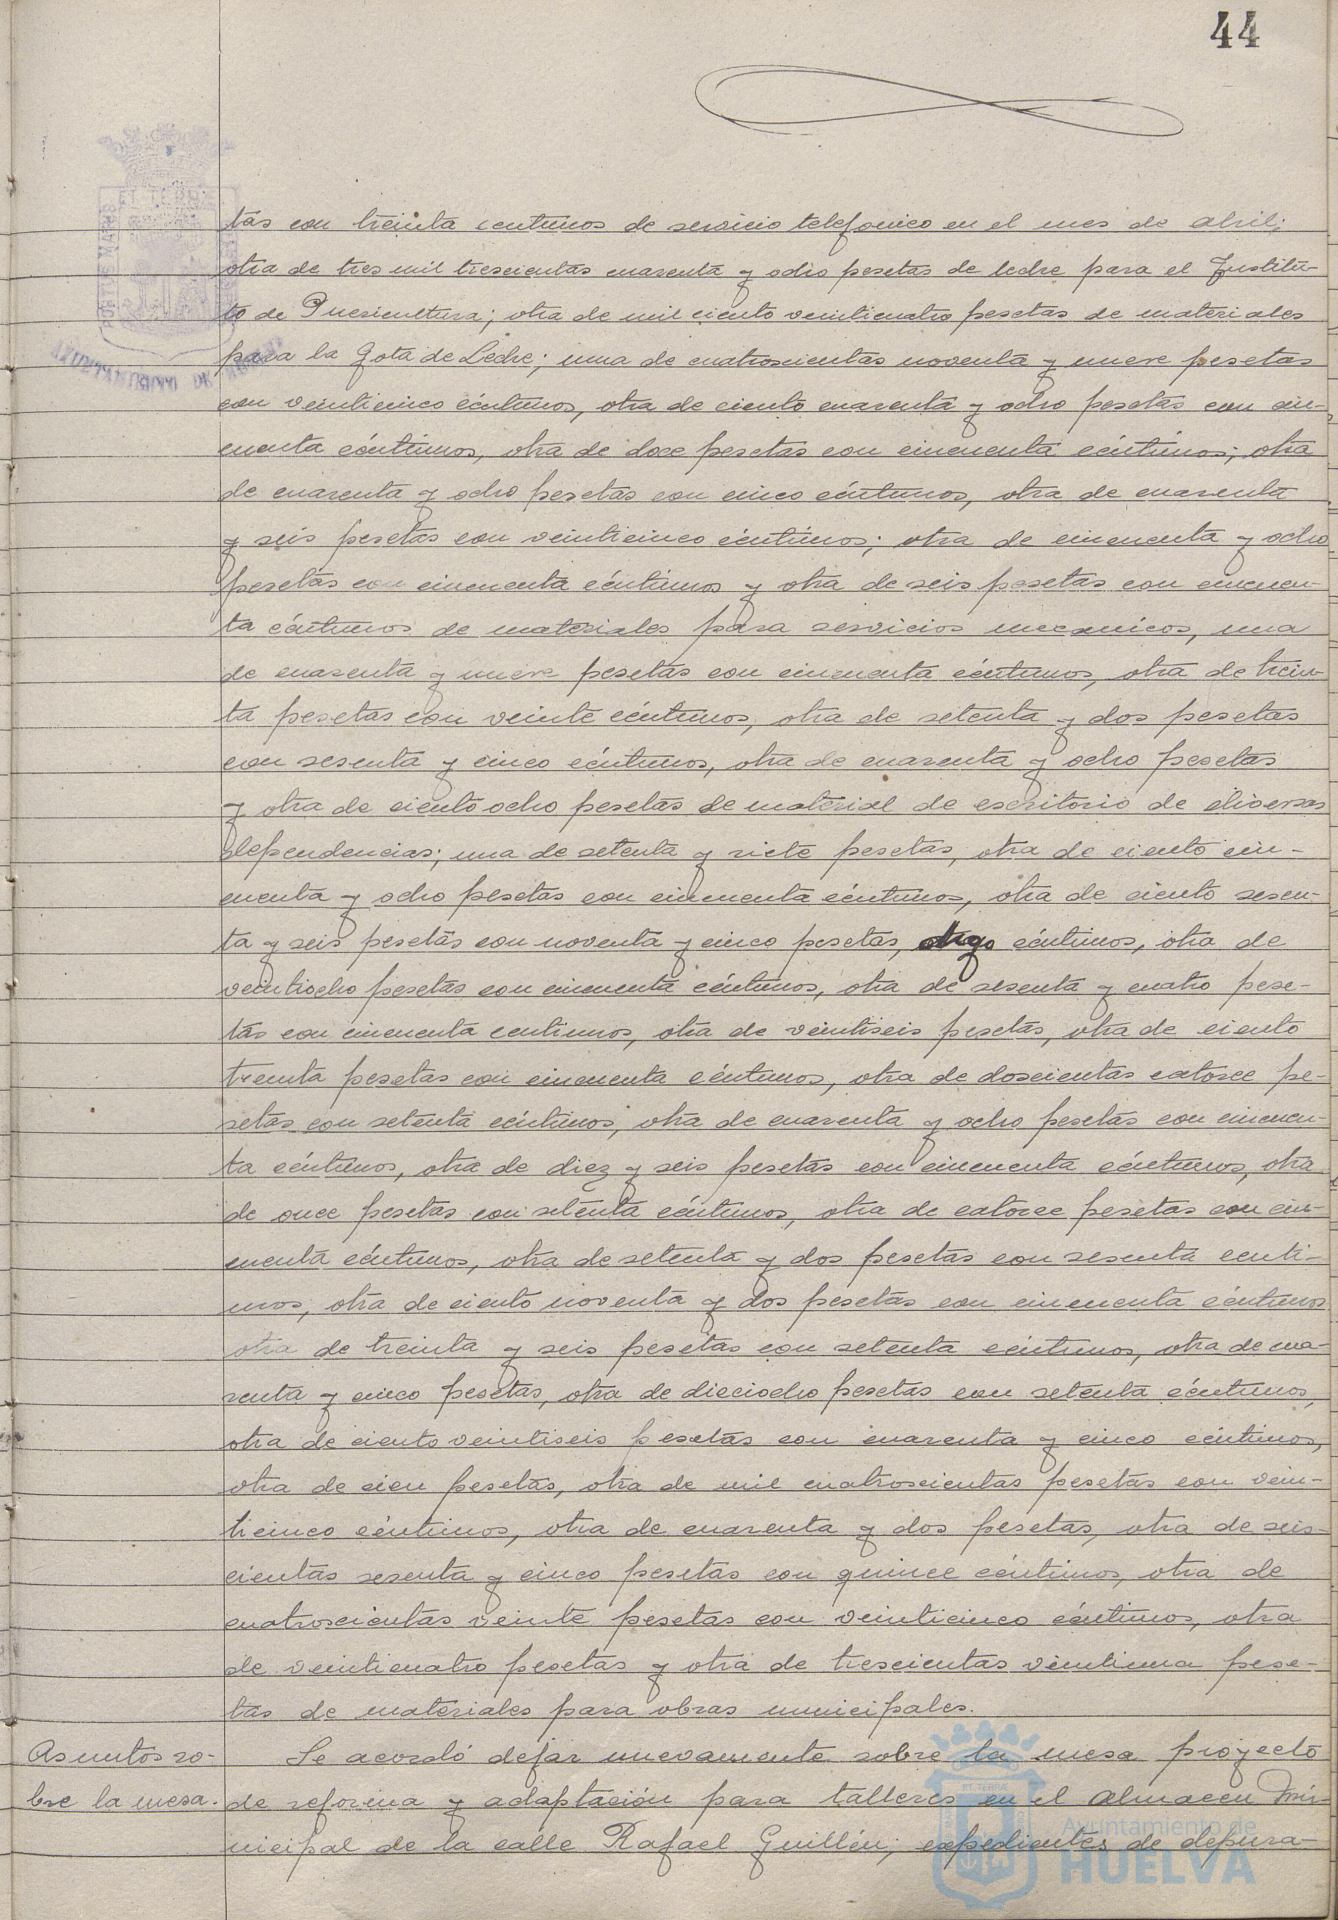 44
PORTUS MARIS ET TERRÆ CUSTODIA
AYUNTAMIENTO DE HUELVA
tas con treinta centimos de servicio telefonico en el mes de abril;
otra de tres mil trescientas cuarenta y ocho pesetas de leche para el Institu-
to de Puericultura; otra de mil ciento veinticuatro pesetas de materiales
para la Gota de Leche; una de cuatroscientas noventa y nueve pesetas
con veinticinco céntimos, otra de ciento cuarenta y ocho pesetas con cin-
cuenta céntimos, otra de doce pesetas con cincuenta céntimos; otra
de cuarenta y ocho pesetas con cinco céntimos, otra de cuarenta
y seis pesetas con veinticinco céntimos; otra de cincuenta y ocho
pesetas con cincuenta céntimos y otra de seis pesetas con cincuen-
ta céntimos de materiales para servicios mecanicos, una
de cuarenta y nueve pesetas con cincuenta céntimos, otra de trein-
ta pesetas con veinte céntimos, otra de setenta y dos pesetas
con sesenta y cinco céntimos, otra de cuarenta y ocho pesetas
y otra de ciento ocho pesetas de material de escritorio de diversas
dependencias; una de setenta y siete pesetas, otra de ciento cin-
cuenta y ocho pesetas con cincuenta céntimos, otra de ciento sesen-
ta y seis pesetas con noventa y cinco pesetas, digo céntimos, otra de
veintiocho pesetas con cincuenta céntimos, otra de sesenta y cuatro pese-
tas con cincuenta centimos, otra de veintiseis pesetas, otra de ciento
treinta pesetas con cincuenta céntimos, otra de doscientas catorce pe-
setas con setenta céntimos, otra de cuarenta y ocho pesetas con cincuen-
ta céntimos, otra de diez y seis pesetas con cincuenta céntimos, otra
de once pesetas con setenta céntimos, otra de catorce pesetas con cin-
cuenta céntimos, otra de setenta y dos pesetas con sesenta centi-
mos, otra de ciento noventa y dos pesetas con cincuenta céntimos
otra de treinta y seis pesetas con setenta céntimos, otra de cua-
renta y cinco pesetas, otra de dieciocho pesetas con setenta céntimos,
otra de ciento veintiseis pesetas con cuarenta y cinco céntimos,
otra de cien pesetas, otra de mil cuatroscientas pesetas con vein-
ticinco céntimos, otra de cuarenta y dos pesetas, otra de seis-
cientas sesenta y cinco pesetas con quince céntimos, otra de
cuatroscientas veinte pesetas con veinticinco céntimos, otra
de veinticuatro pesetas y otra de trescientas veintiuna pese-
tas de materiales para obras municipales.
Asuntos so-
bre la mesa.
Se acordó dejar nuevamente sobre la mesa proyecto
de reforma y adaptación para talleres en el Almacen Mu-
nicipal de la calle Rafael Guillén; expedientes de depura-
Ayuntamiento de
HUELVA